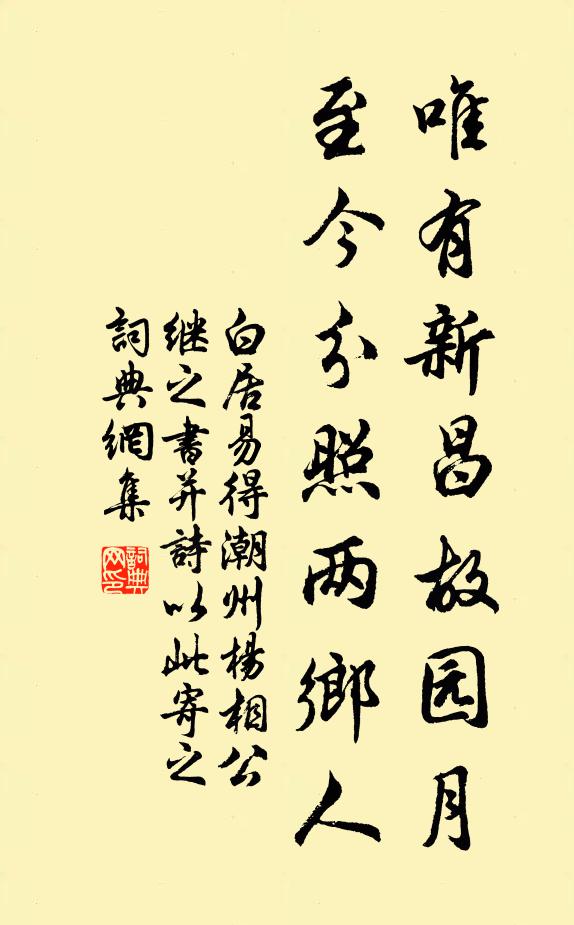 唯有新昌故园月
至今分照两鄉人
白居易得潮州楊相公
继之書并詩以此寄之
詞典網集
詞典
网印